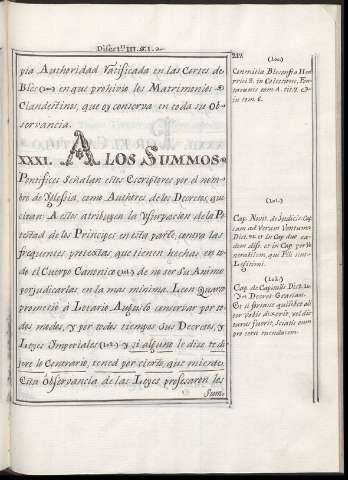 Disert.ⁿ III. §. I.
212.
pia Authoridad ratificada en las Cortes de
Bles en que prohivio los Matrimonios
Clandestinos, que oy conserva en toda su Ob
servancia.
XXXI. A LOS SUMMOS
Pontifices Señalan estos Escriptores por el nom
bro de Yglesia, como Authores de los Decretos, que
citan A estos atribuyen la Usurpacion de la Po
testad de los Principes en esta parte, contra las
frequentes protextas que tienen hechas en to
do el Cuerpo Canonico de no ser Su Animo
perjudicarlas en la mas minima. Leon Quarto
prometió à Lotario Augusto conservar por to
dos modos, y por todos tiempos sus Decretos, y
Leyes Imperiales y si alguno le dixe
re lo Contrario, tened por cierto, que miente.
Esta Observancia de las Leyes profesaron los
Sum.
(100.)
in Colectione,
cum 6.
(101.)
Cap. Novit. de Judiciis Cap.
Dict. et in Cap.
dem dist. et in Cap. per Ve
nerabilem, qui Filii sint
Legitimi.
(102.)
Cap. de Capitulis Dist. 10
In Decret. Gratiani.
Et si forsitan quilibet ali
ter vobis dixerit, vel dic
turus fuerit, sciatis eum
pro certo mendacem.